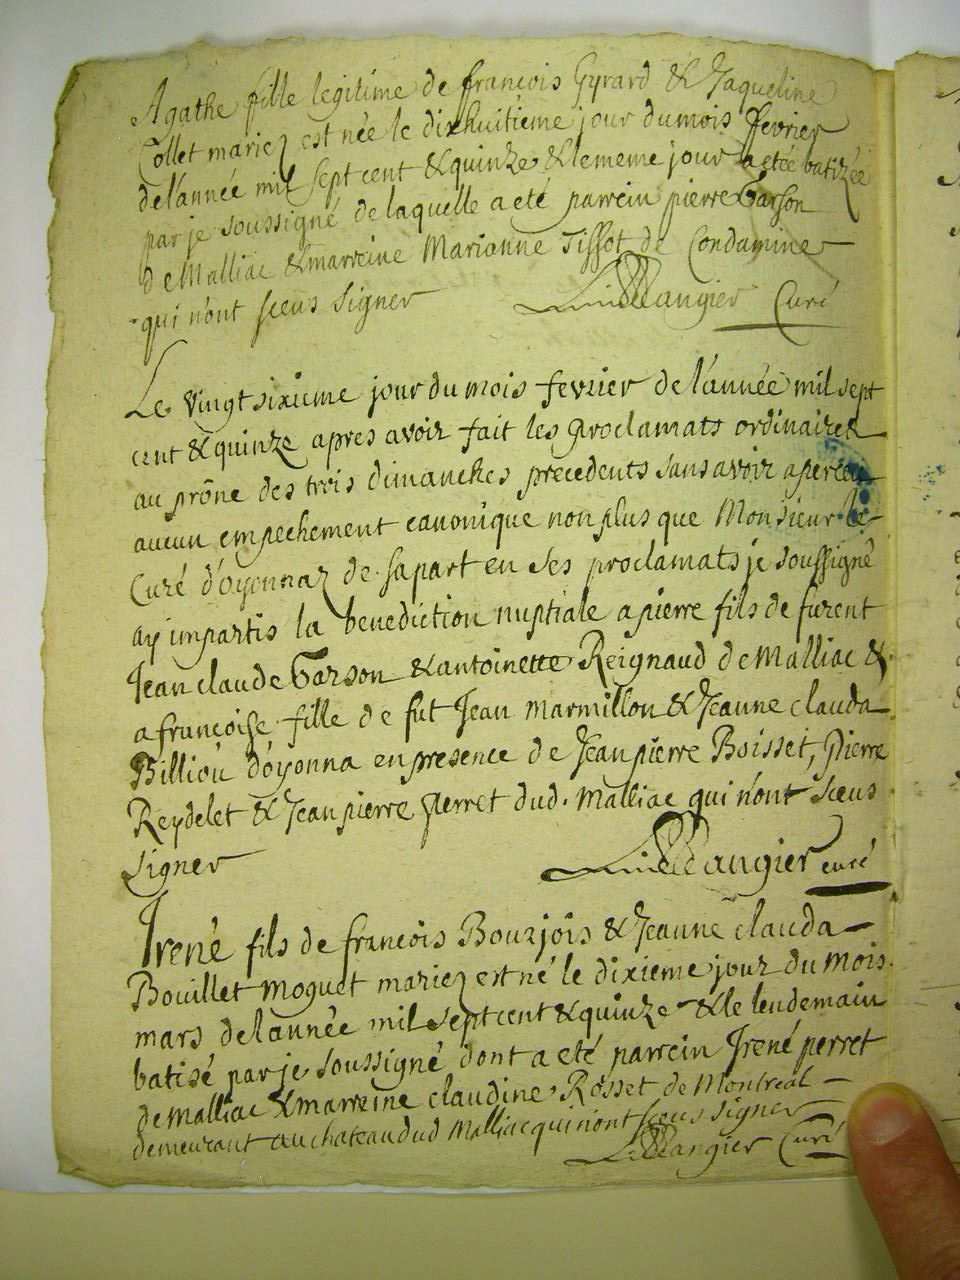 Agathe fille legitime de françois Gyrard & Jaqueline
Collet mariez est née le dixhuitieme jour du mois fevrier
de l'année mil sept cent & quinze & le meme jour a etée batizée
par je soussigné de laquelle a eté parrein pierre Garson
de Malliac & marreine Marianne Tissot de Condamine
qui n'ont sceus signer Curé
Le vingt sixieme jour du mois fevrier de l'année mil sept
cent & quinze apres avoir fait les proclamats ordinaires
au prône des trois dimanches precedents sans avoir aperceu
aucun empechement canonique non plus que Monsieur le
Curé d'oyonnaz de sa part en ses proclamats je soussigné
ay impartis la benediction nuptiale a pierre fils de furent
Jean claude Garson & antoinette Reignaud de Malliac &
a françoise fille de fut Jean Marmillon & Jeanne clauda
Billiou d'oyonna en presence de Jean pierre Boisset, Pierre
Reydelet & Jean pierre perret dud. Malliac qui n'ont sceus
signer curé
Irené fils de françois Bourjois & Jeanne clauda
Bouillet Moguet mariez est né le dixieme jour du mois
mars de l'année mil sept cent & quinze & le lendemain
batisé par je soussigné dont a eté parrein Irené perret
de Malliac & marreine claudine Rosset de Montreal
demeurant au chateau dud Malliac qui n'ont sceus signer
Curé